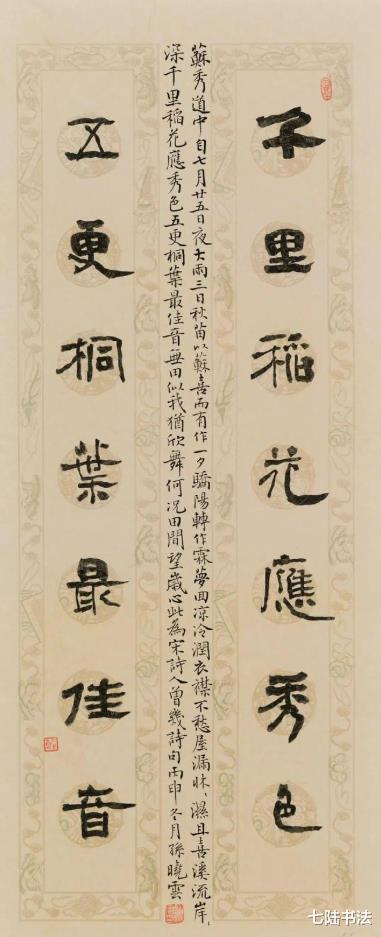 千里稻花應秀色
蘇秀道中自七月廿五日夜大雨三日秋苗以蘇喜而有作一夕驕陽轉作霖夢回涼冷潤衣襟不愁屋漏牀、濕且喜溪流岸、
深千里稻花應秀色五更桐葉最佳音無田似我猶欣舞何況田間望歲心此為宋詩人曾幾詩句丙申冬月孫曉雲
五更桐葉最佳音
七陆书法